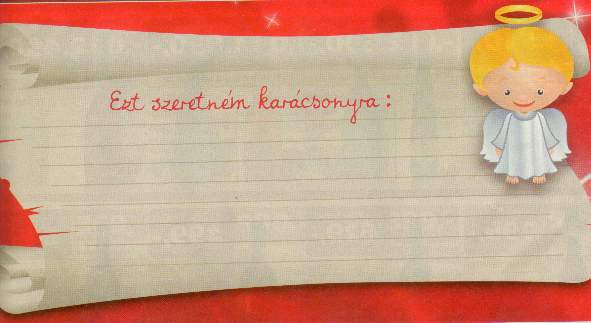 Ezt szeretném karácsonyra :